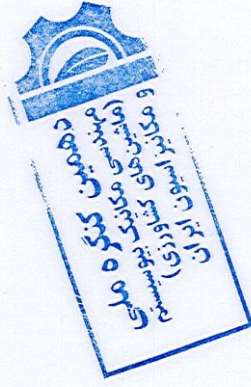 دهمین کنگره ملی
مهندسی مکانیک بیوسیستم
(ماشین‌های کشاورزی)
و مکانیزاسیون ایران